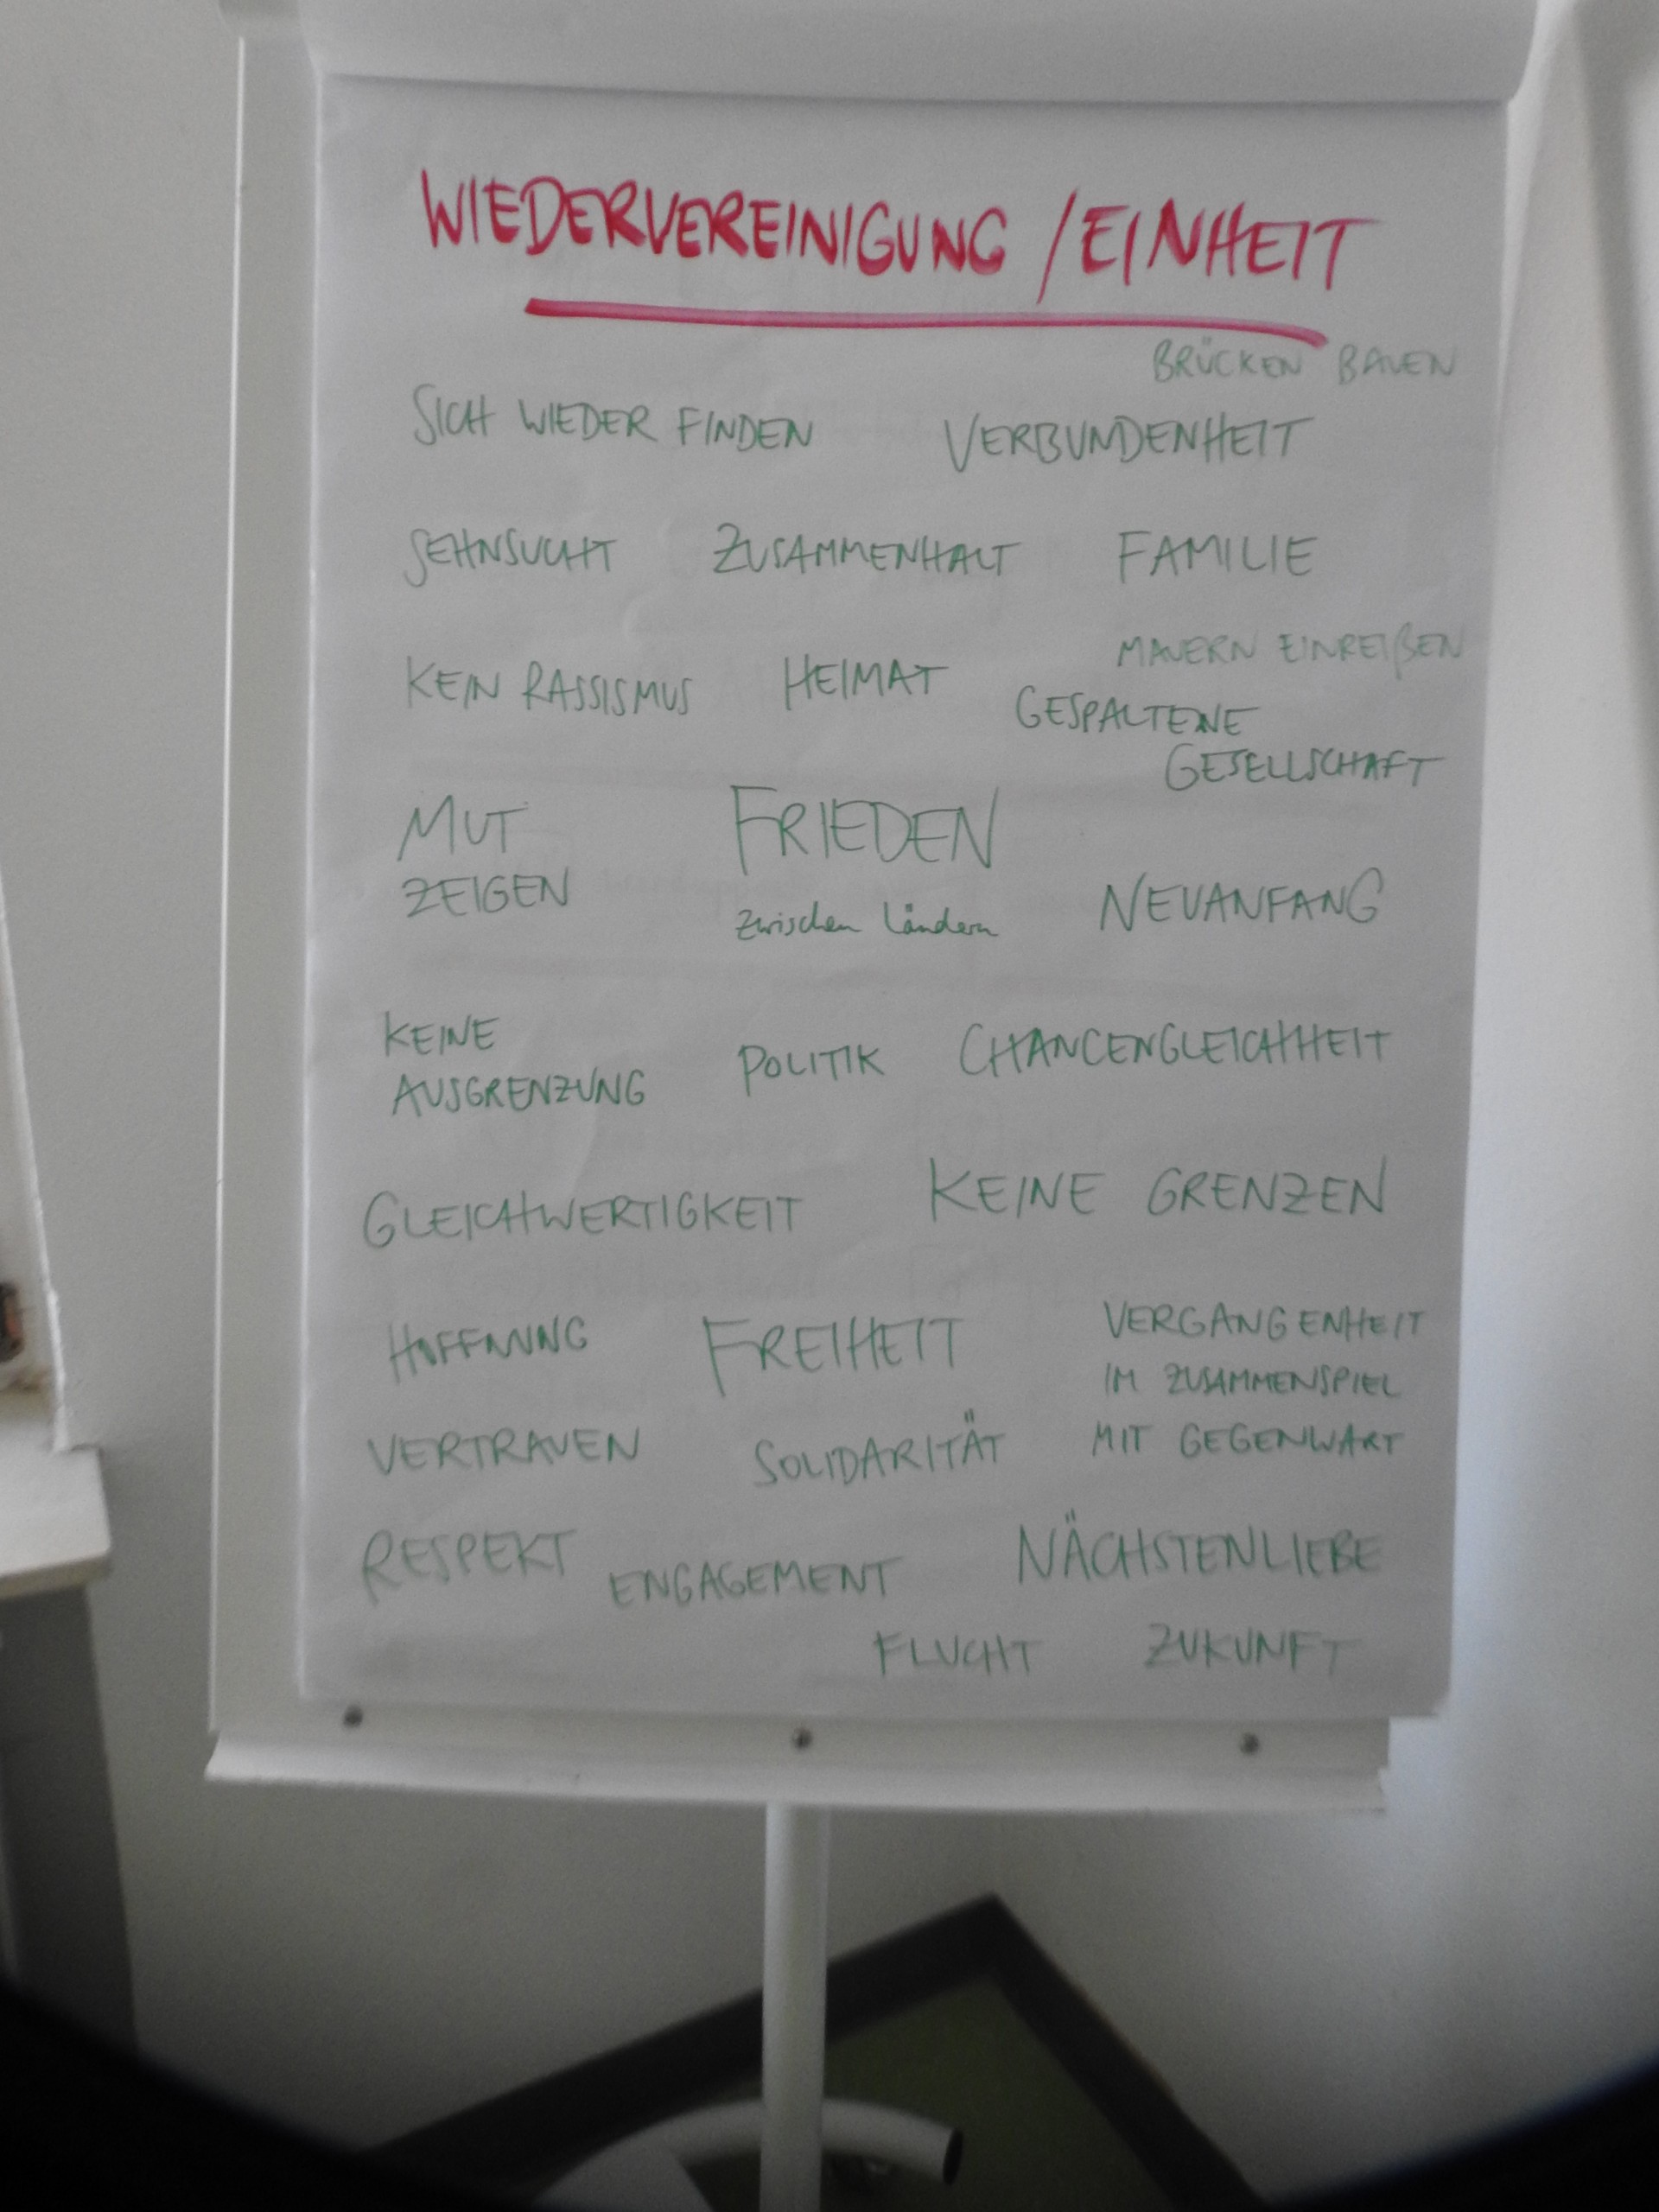 WIEDERVEREINIGUNG / EINHEIT
BRÜCKEN BAUEN
SICH WIEDER FINDEN VERBUNDENHEIT
SEHNSUCHT ZUSAMMENHALT FAMILIE
MAUERN EINREIßEN
KEIN RASSISMUS HEIMAT
GESPALTENE
GESELLSCHAFT
MUT FRIEDEN
ZEIGEN zwischen Ländern NEUANFANG
KEINE
AUSGRENZUNG POLITIK CHANCENGLEICHHEIT
GLEICHWERTIGKEIT KEINE GRENZEN
HOFFNUNG FREIHEIT
VERGANGENHEIT
IM ZUSAMMENSPIEL
MIT GEGENWART
VERTRAUEN SOLIDARITÄT
RESPEKT ENGAGEMENT NÄCHSTENLIEBE
FLUCHT ZUKUNFT